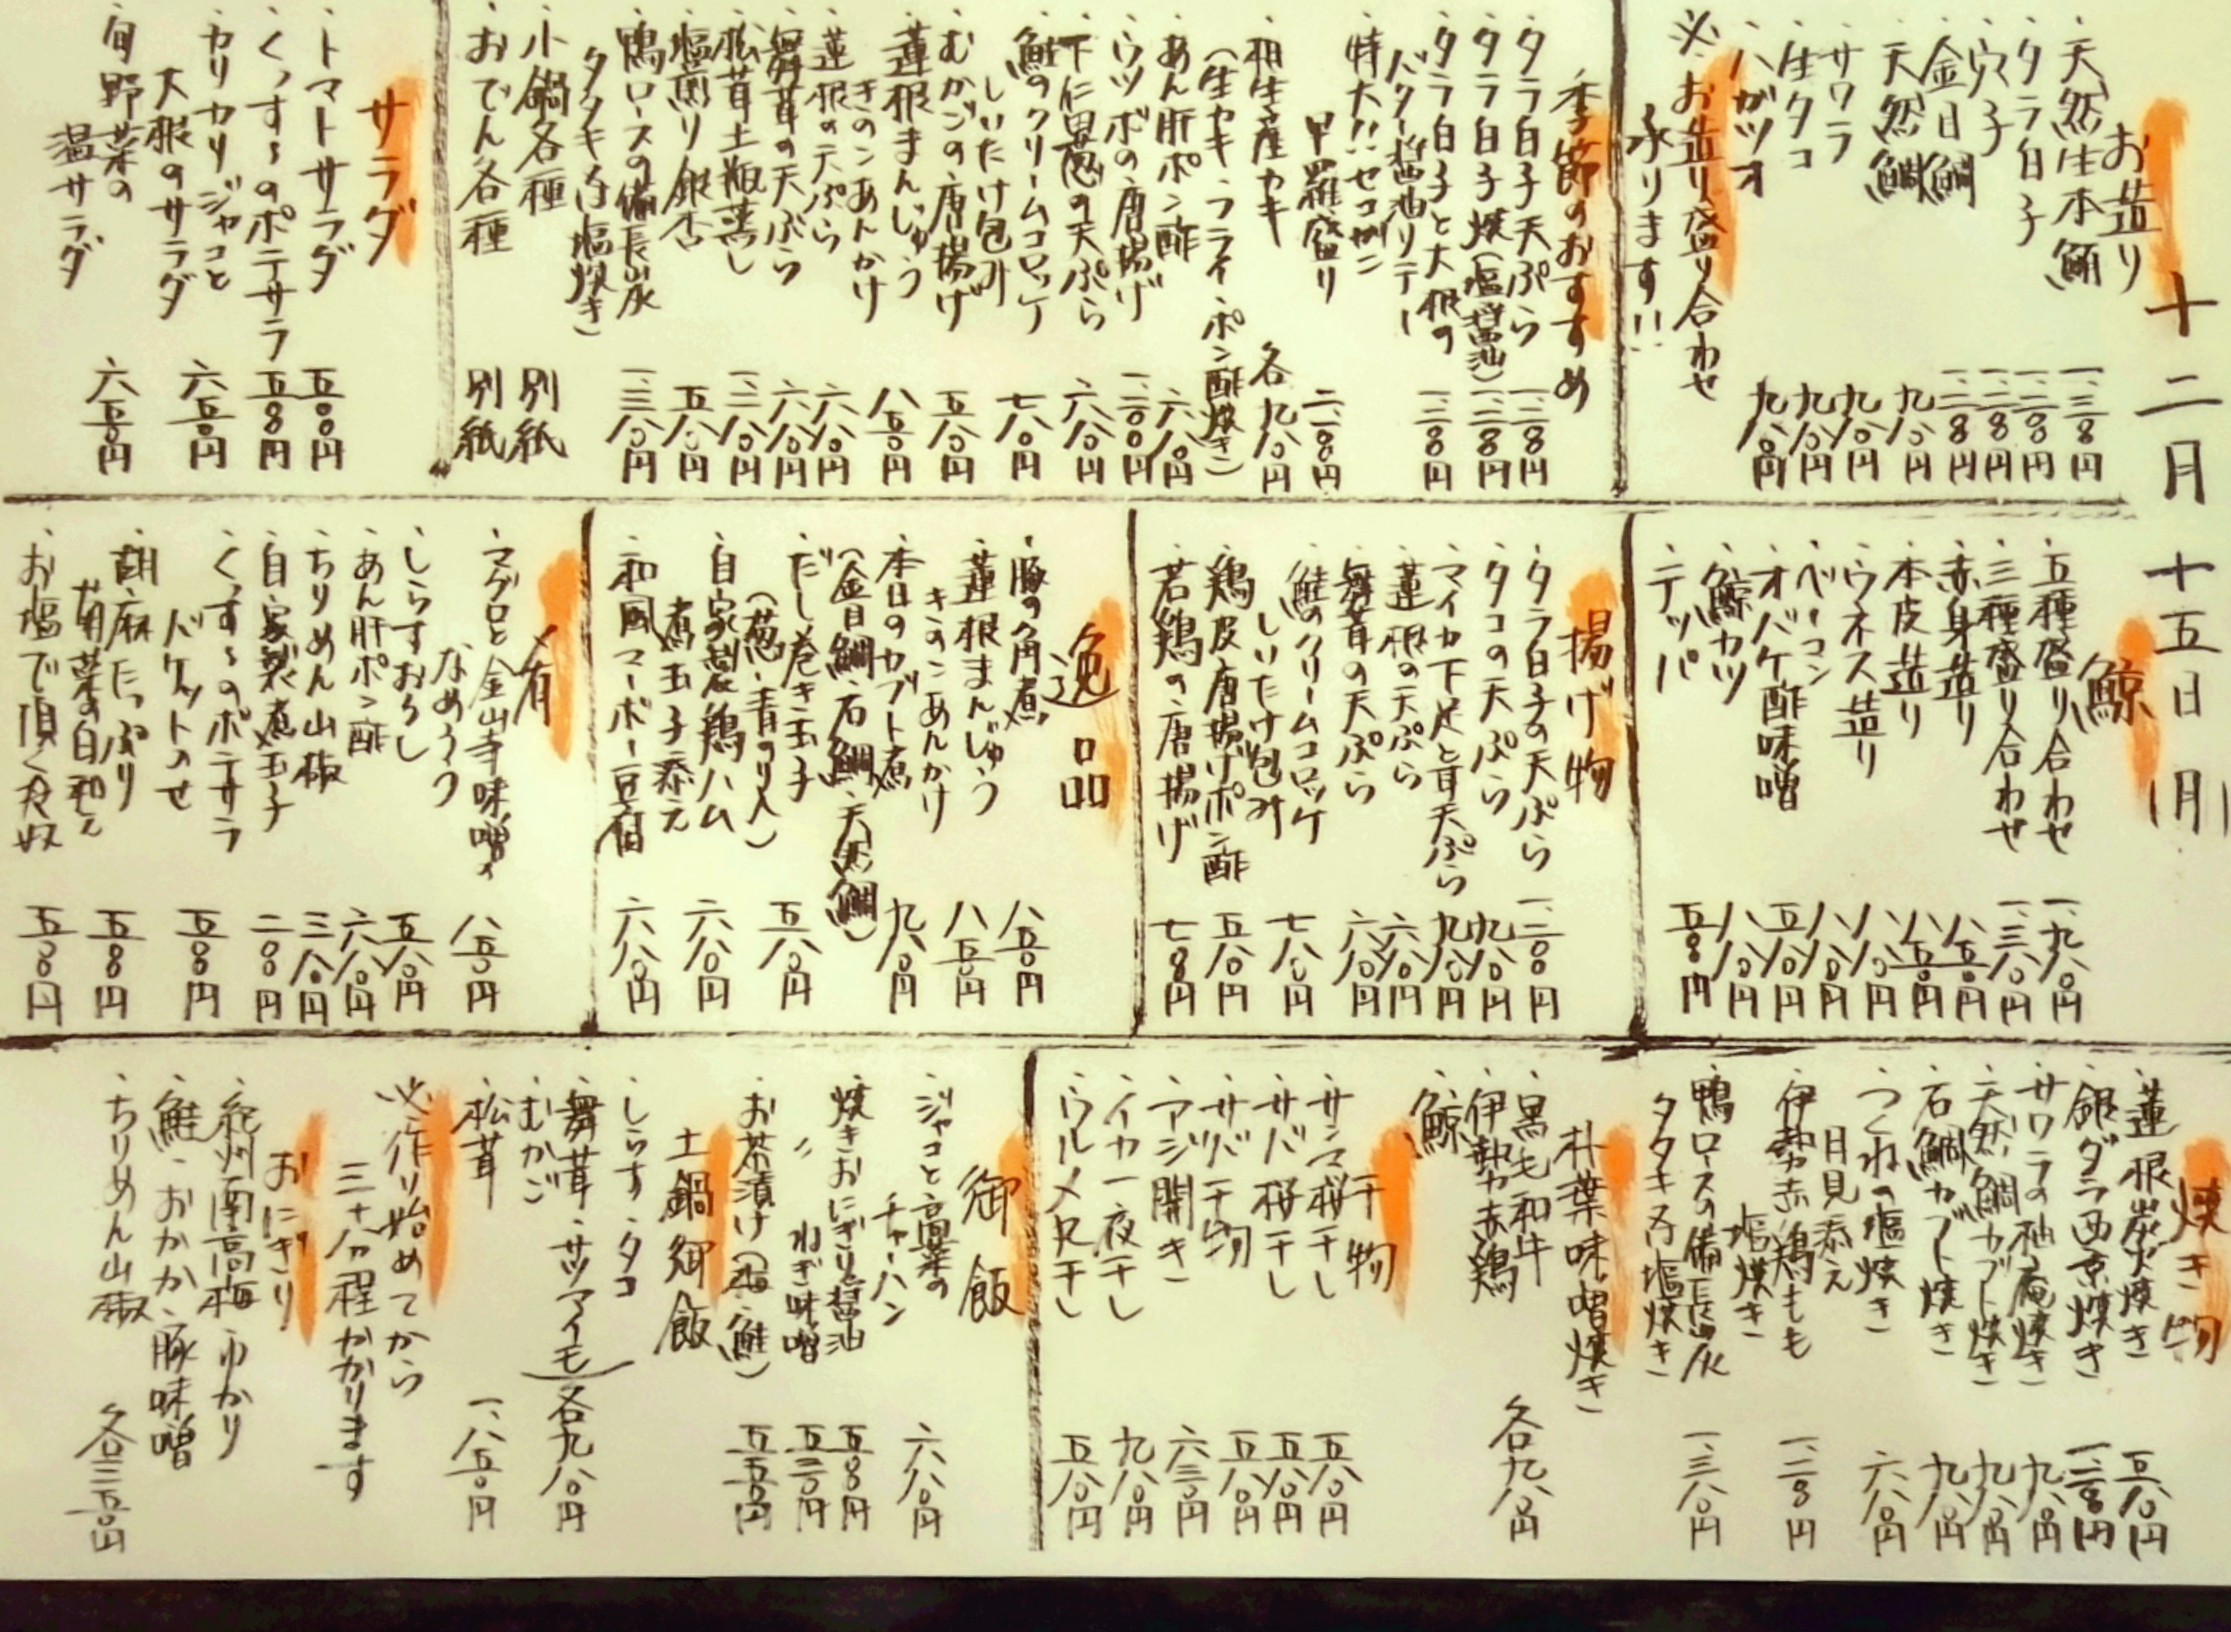 十二月十五日(月)
お造り
・天然生本鮪 一、三八〇円
・タラ白子
・穴子
・金目鯛
・天然鯛 九八〇円
・サワラ 九八〇円
・生タコ 九八〇円
・ハガツオ 九八〇円
※お造り盛り合わせ
承ります!!
季節のおすすめ
・タラ白子天ぷら
・タラ白子焼(塩・醤油)
・タラ白子と大根の
バター醤油ソテー
・特大!!セコガニ
甲羅盛り
・相生産カキ 各九八〇円
(生カキ・フライ・ポン酢・焼き)
・あん肝ポン酢 六八〇円
・ウツボの唐揚げ
・下仁田葱の天ぷら 六八〇円
・鮭のクリームコロッケ
しいたけ包み 七八〇円
・むかごの唐揚げ 五八〇円
・蓮根まんじゅう
きのこあんかけ 八五〇円
・蓮根の天ぷら 六八〇円
・舞茸の天ぷら 六八〇円
・松茸土瓶蒸し
・塩煎り銀杏 五八〇円
・鴨ロースの備長炭
タタキ(又は塩焼き) 一、三八〇円
・小鍋各種 別紙
・おでん各種 別紙
サラダ
・トマトサラダ 五〇〇円
・くっすぅのポテサラ 五〇〇円
・カリカリジャコと
大根のサラダ 六五〇円
・旬野菜の
温サラダ 六五〇円
鯨
・五種盛り合わせ 一、九八〇円
・三種盛り合わせ 一、三八〇円
・赤身造り 八五〇円
・本皮造り 八五〇円
・ウネス造り 八八〇円
・ベーコン 八八〇円
・オバケ酢味噌 五八〇円
・鯨カツ 八八〇円
・テッパ 五〇〇円
揚げ物
・タラ白子の天ぷら
・タコの天ぷら 九八〇円
・マイカ下足と耳天ぷら 九八〇円
・蓮根の天ぷら 六八〇円
・舞茸の天ぷら 六八〇円
・鮭のクリームコロッケ
しいたけ包み 七八〇円
・鶏皮唐揚げポン酢 五八〇円
・若鶏の唐揚げ 七〇〇円
逸品
・豚の角煮 八五〇円
・蓮根まんじゅう
きのこあんかけ 八五〇円
・本日のカブト煮 九八〇円
(金目鯛・石鯛・天然鯛)
・だし巻き玉子 五八〇円
(葱・青のり入)
・自家製鶏ハム
煮玉子添え 六八〇円
・和風マーボー豆腐 六八〇円
肴
・マグロと金山寺味噌の
なめろう 八五〇円
・しらすおろし 五八〇円
・あん肝ポン酢 六八〇円
・ちりめん山椒 三八〇円
・自家製煮玉子 二〇〇円
・くっすぅのポテサラ
バケットのせ 五〇〇円
・胡麻たっぷり
菊菜の白和え 五〇〇円
・お塩で頂く冷奴 五〇〇円
焼き物
・蓮根炭火焼き 五八〇円
・銀ダラ西京焼き
・サワラの柚庵焼き 九八〇円
・天然鯛カブト焼き 九八〇円
・石鯛カブト焼き 九八〇円
・つくねの塩焼き
月見添え 六八〇円
・伊勢赤鶏もも
塩焼き
・鴨ロースの備長炭
タタキ又は塩焼き 一、三八〇円
朴葉味噌焼き
・黒毛和牛
・伊勢赤鶏 各九八〇円
・鯨
干物
・サンマ桜干し 五八〇円
・サバ桜干し 五八〇円
・サバ干物 五八〇円
・アジ開き 六三〇円
・イカ一夜干し 九八〇円
・ウルメ丸干し 五八〇円
御飯
・ジャコと高菜の
チャーハン 六八〇円
・焼きおにぎり醤油 五〇〇円
〃 ねぎ味噌 五三〇円
・お茶漬け(梅・鮭) 五五〇円
土鍋御飯
・しらす・タコ
・舞茸・サツマイモ 各九八〇円
・むかご
・松茸 一、八五〇円
※作り始めてから
三十分程かかります
おにぎり
・紀州南高梅・ゆかり
・鮭・おかか・豚味噌
・ちりめん山椒 各三五〇円